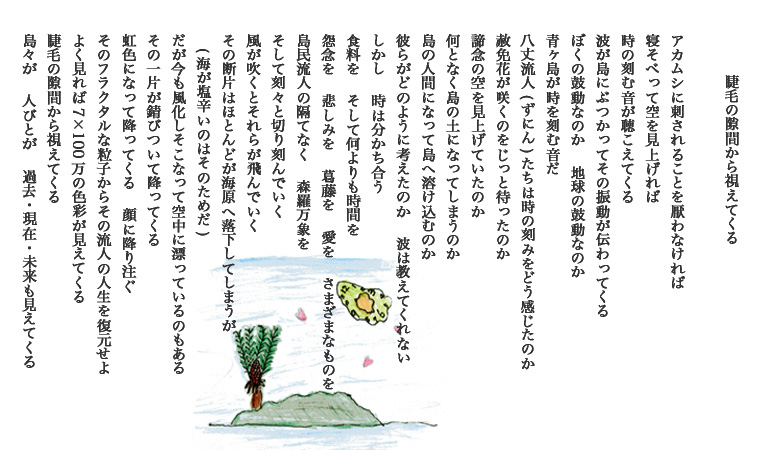 睫毛の隙間から視えてくる
アカムシに刺されることを厭わなければ
寝そべって空を見上げれば
時の刻む音が聴こえてくる
波が島にぶつかってその振動が伝わってくる
ぼくの鼓動なのか　地球の鼓動なのか
青ヶ島が時を刻む音だ
八丈流人（ずにん）たちは時の刻みをどう感じたのか
赦免花が咲くのをじっと待ったのか
諦念の空を見上げていたのか
何となく島の土になってしまうのか
島の人間になって島へ溶け込むのか
彼らがどのように考えたのか　波は教えてくれない
しかし　時は分かち合う
食料を　そして何よりも時間を
怨念を　悲しみを　葛藤を　愛を　さまざまなものを
島民流人の隔てなく　森羅万象を
そして刻々と切り刻んでいく
風が吹くとそれらが飛んでいく
その断片はほとんどが海原へ落下してしまうが
（海が塩辛いのはそのためだ）
だが今も風化しそこなって空中に漂っているのもある
その一片が錆びついて降ってくる
虹色になって降ってくる　顔に降り注ぐ
そのフラクタルな粒子からその流人の人生を復元せよ
よく見れば7×100万の色彩が見えてくる
睫毛の隙間から視えてくる
島々が　人びとが　過去・現在・未来も見えてくる